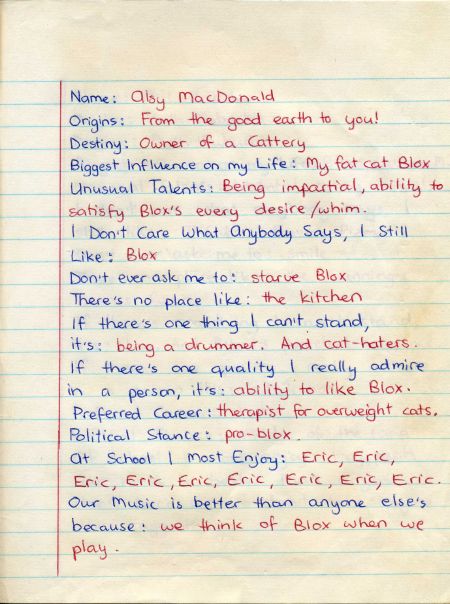 Name: Alsy MacDonald
Origins: From the good earth to you!
Destiny: Owner of a Cattery
Biggest Influence on my Life: My fat cat Blox
Unusual Talents: Being impartial, ability to
satisfy Blox's every desire/whim.
I Don't Care What Anybody Says, I Still
Like: Blox
Don't ever ask me to: starve Blox
There's no place like: the kitchen
If there's one thing I can't stand,
it's: being a drummer. And cat-haters.
If there's one quality I really admire
in a person, it's: ability to like Blox.
Preferred Career: therapist for overweight cats.
Political Stance: pro-blox.
At School I Most Enjoy: Eric, Eric,
Eric, Eric, Eric, Eric, Eric, Eric, Eric.
Our Music is better than anyone else's
because: we think of Blox when we
play.